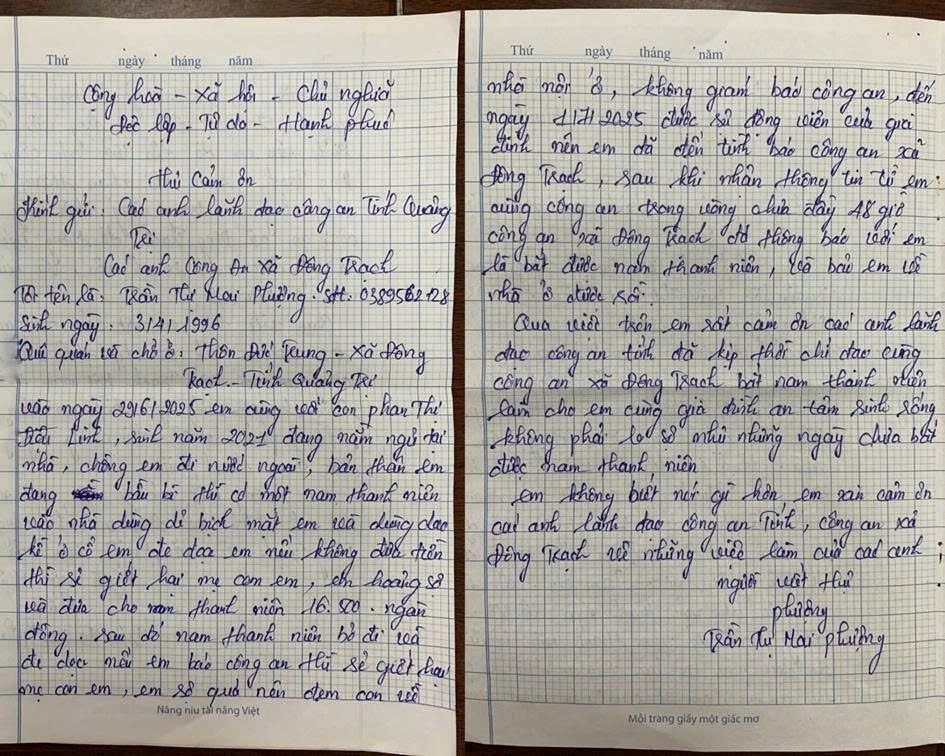 Thứ ngày tháng năm
Cộng hoà - Xã hôi - Chủ nghiã
Độc lập - Tự do - Hanh phuć
Thư Cảm ơn
Kính gửi: Các anh lãnh đạo công an Tỉnh Quảng
Trị
Các anh Công An xã Đông Trạch
Tôi tên là: Trần Thị Mai Phượng. sđt. 0389562128
Sinh ngày: 3/4/1996
Quê quán và chỗ ở: Thôn Đức Trung - xã Đông
Trạch - Tỉnh Quảng Trị
vào ngày 29/6/2025 em cùng với con phan Thị
Linh, sinh năm 2021 đang nằm ngủ tại
nhà, chồng em đi nước ngoài, bản thân em
đang bầu bí thì có một nam thanh niên
vào nhà dùng dẻ bịch mặt em và dùng dao
kề ở cổ em, đe doạ em nếu không đưa tiền
thì sẽ giết hai mẹ con em, em hoảng sợ
và đưa cho nam thanh niên 16.500. ngàn
đồng. sau đó nam thanh niên bỏ đi và
đe doạ nếu em báo công an thì sẽ giết hai
mẹ con em, em sợ quá nên đem con về
Nâng niu tài năng Việt
Thứ ngày tháng năm
nhà nội ở, không giám báo công an, đến
ngày 1/7/2025 được sự động viên của gia
đình nên em đã đến trình báo công an xã
Đông Trạch, sau khi nhận thông tin từ em
cùng công an trong vòng chưa đầy 48 giờ
công an xã Đông Trạch đã thông báo với em
là bắt được nam thanh niên, và bảo em về
nhà ở được rồi.
Qua việc trên em rất cảm ơn các anh lãnh
đạo công an tỉnh đã kịp thời chỉ đạo cùng
công an xã Đông Trạch bắt nam thanh niên
làm cho em cùng gia đình an tâm sinh sống
không phải lo sợ như những ngày chưa bắt
được nam thanh niên
em không biết nói gì hơn, em xin cảm ơn
các anh lãnh đạo công an Tỉnh, công an xã
Đông Trạch về những việc làm của các anh
người viết thư
phượng
Trần Thị Mai Phượng
Mỗi trang giấy một giấc mơ